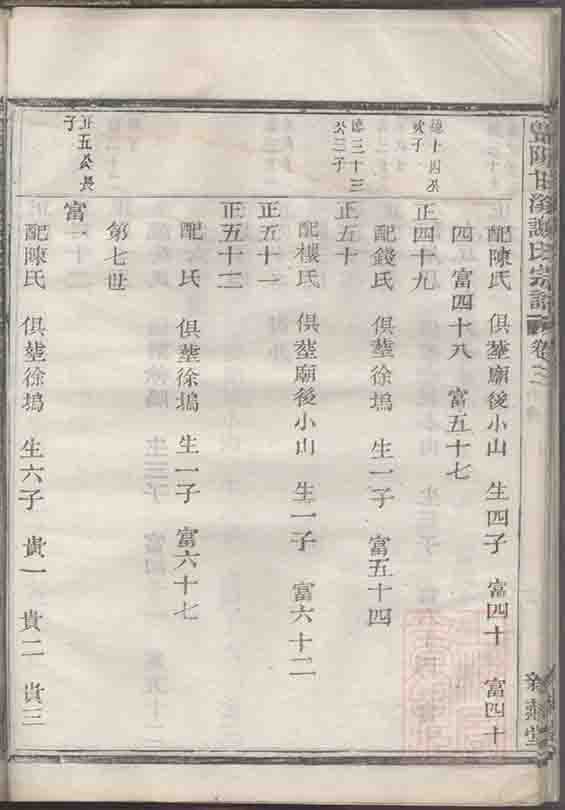 甘溪謝氏宗譜 卷之二
配陳氏 俱塟廟後小山 生四子 富四十 富四十
四 富四十八 富五十七
德十四公
次子
正四十九
配錢氏 俱塟徐塢 生一子 富五十四
德三十三
公三子
正五十
配樓氏 俱塟廟後小山 生一子 富六十二
正五十一
正五十三
配 氏 俱塟徐塢 生一子 富六十七
第七世
正五公長
子
富一
配陳氏 俱塟徐塢 生六子 貴一 貴二 貴三